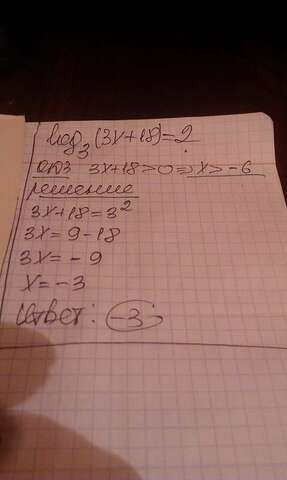 log₃(3x+18)=2
ОДЗ 3x+18>0⇒x>-6
решение
3x+18=3²
3x=9-18
3x=-9
x=-3
Ответ: -3